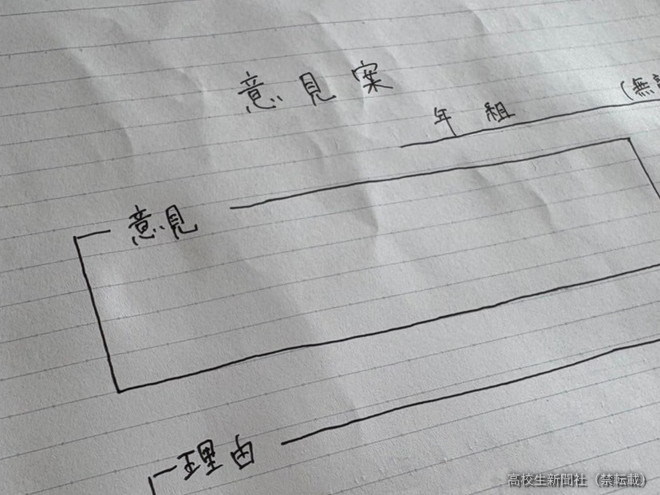 意見案
年 組 (無
意見
理由
高校生新聞社（禁転載）